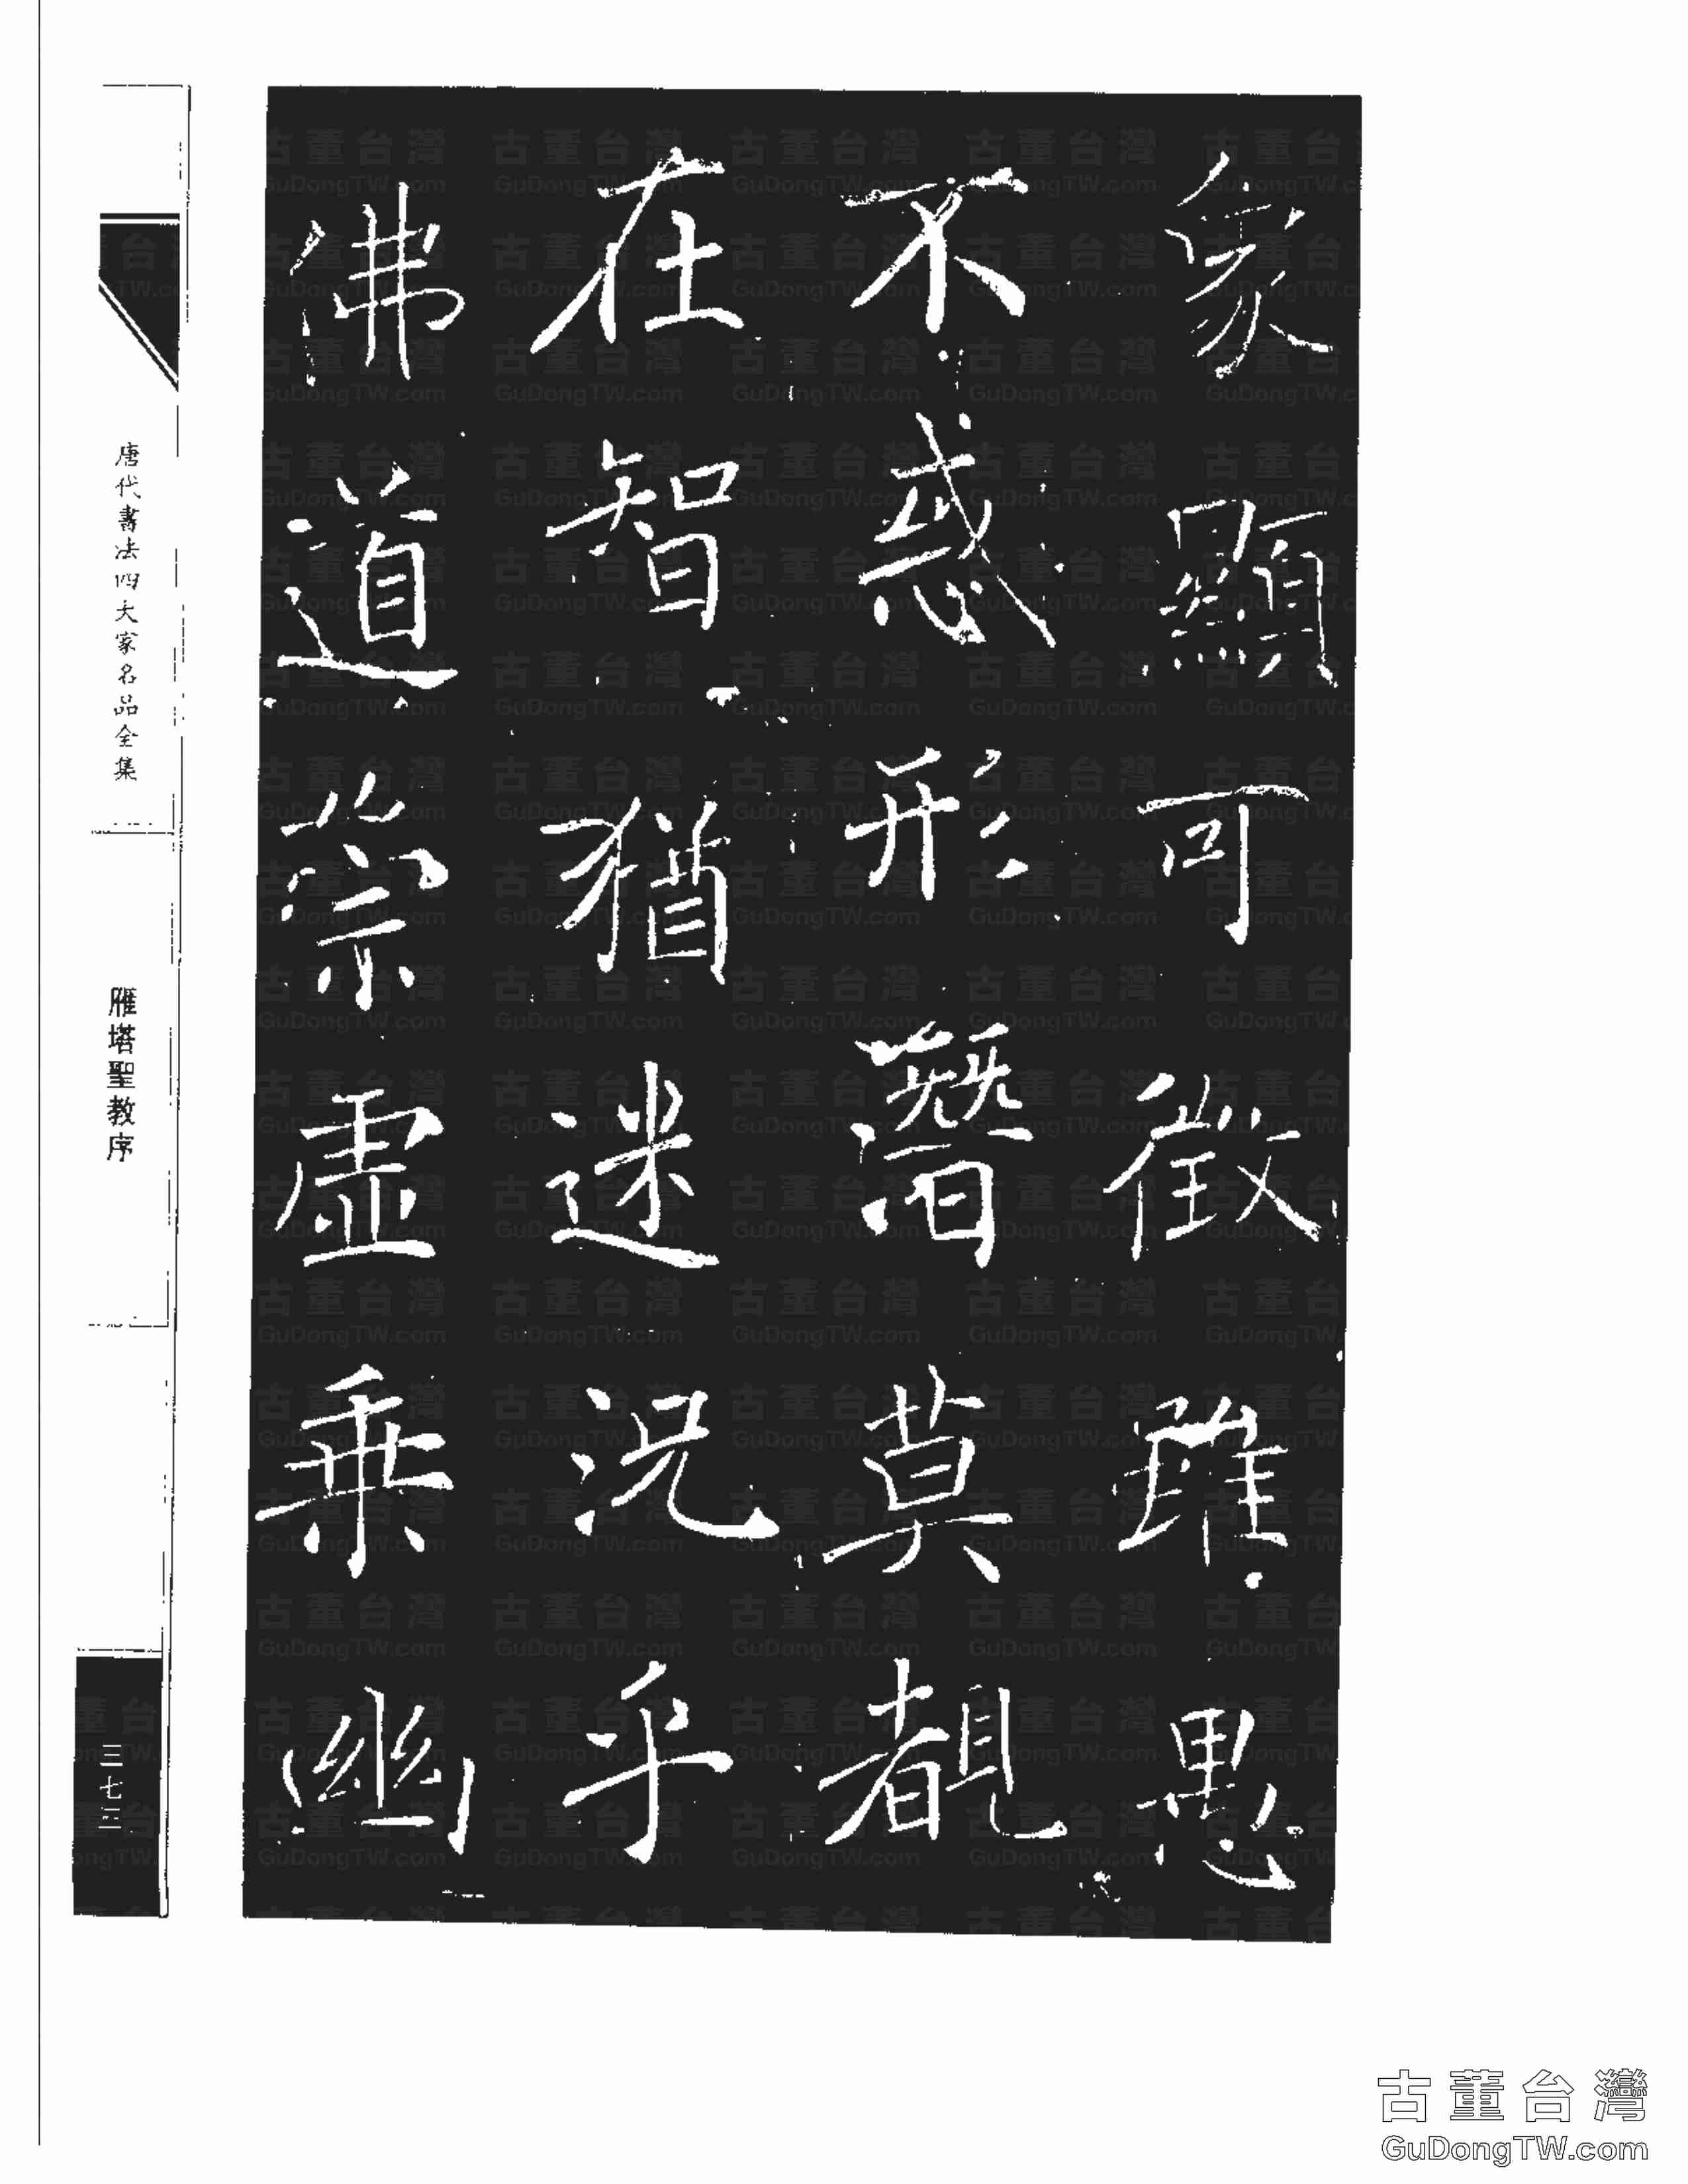 象顯可徵雖愚
不惑形潛莫覩
在智猶迷況乎
佛道崇虛乗幽
唐代書法四大家名品全集
雁塔聖教序
三七三
古董台灣
GuDongTW.com